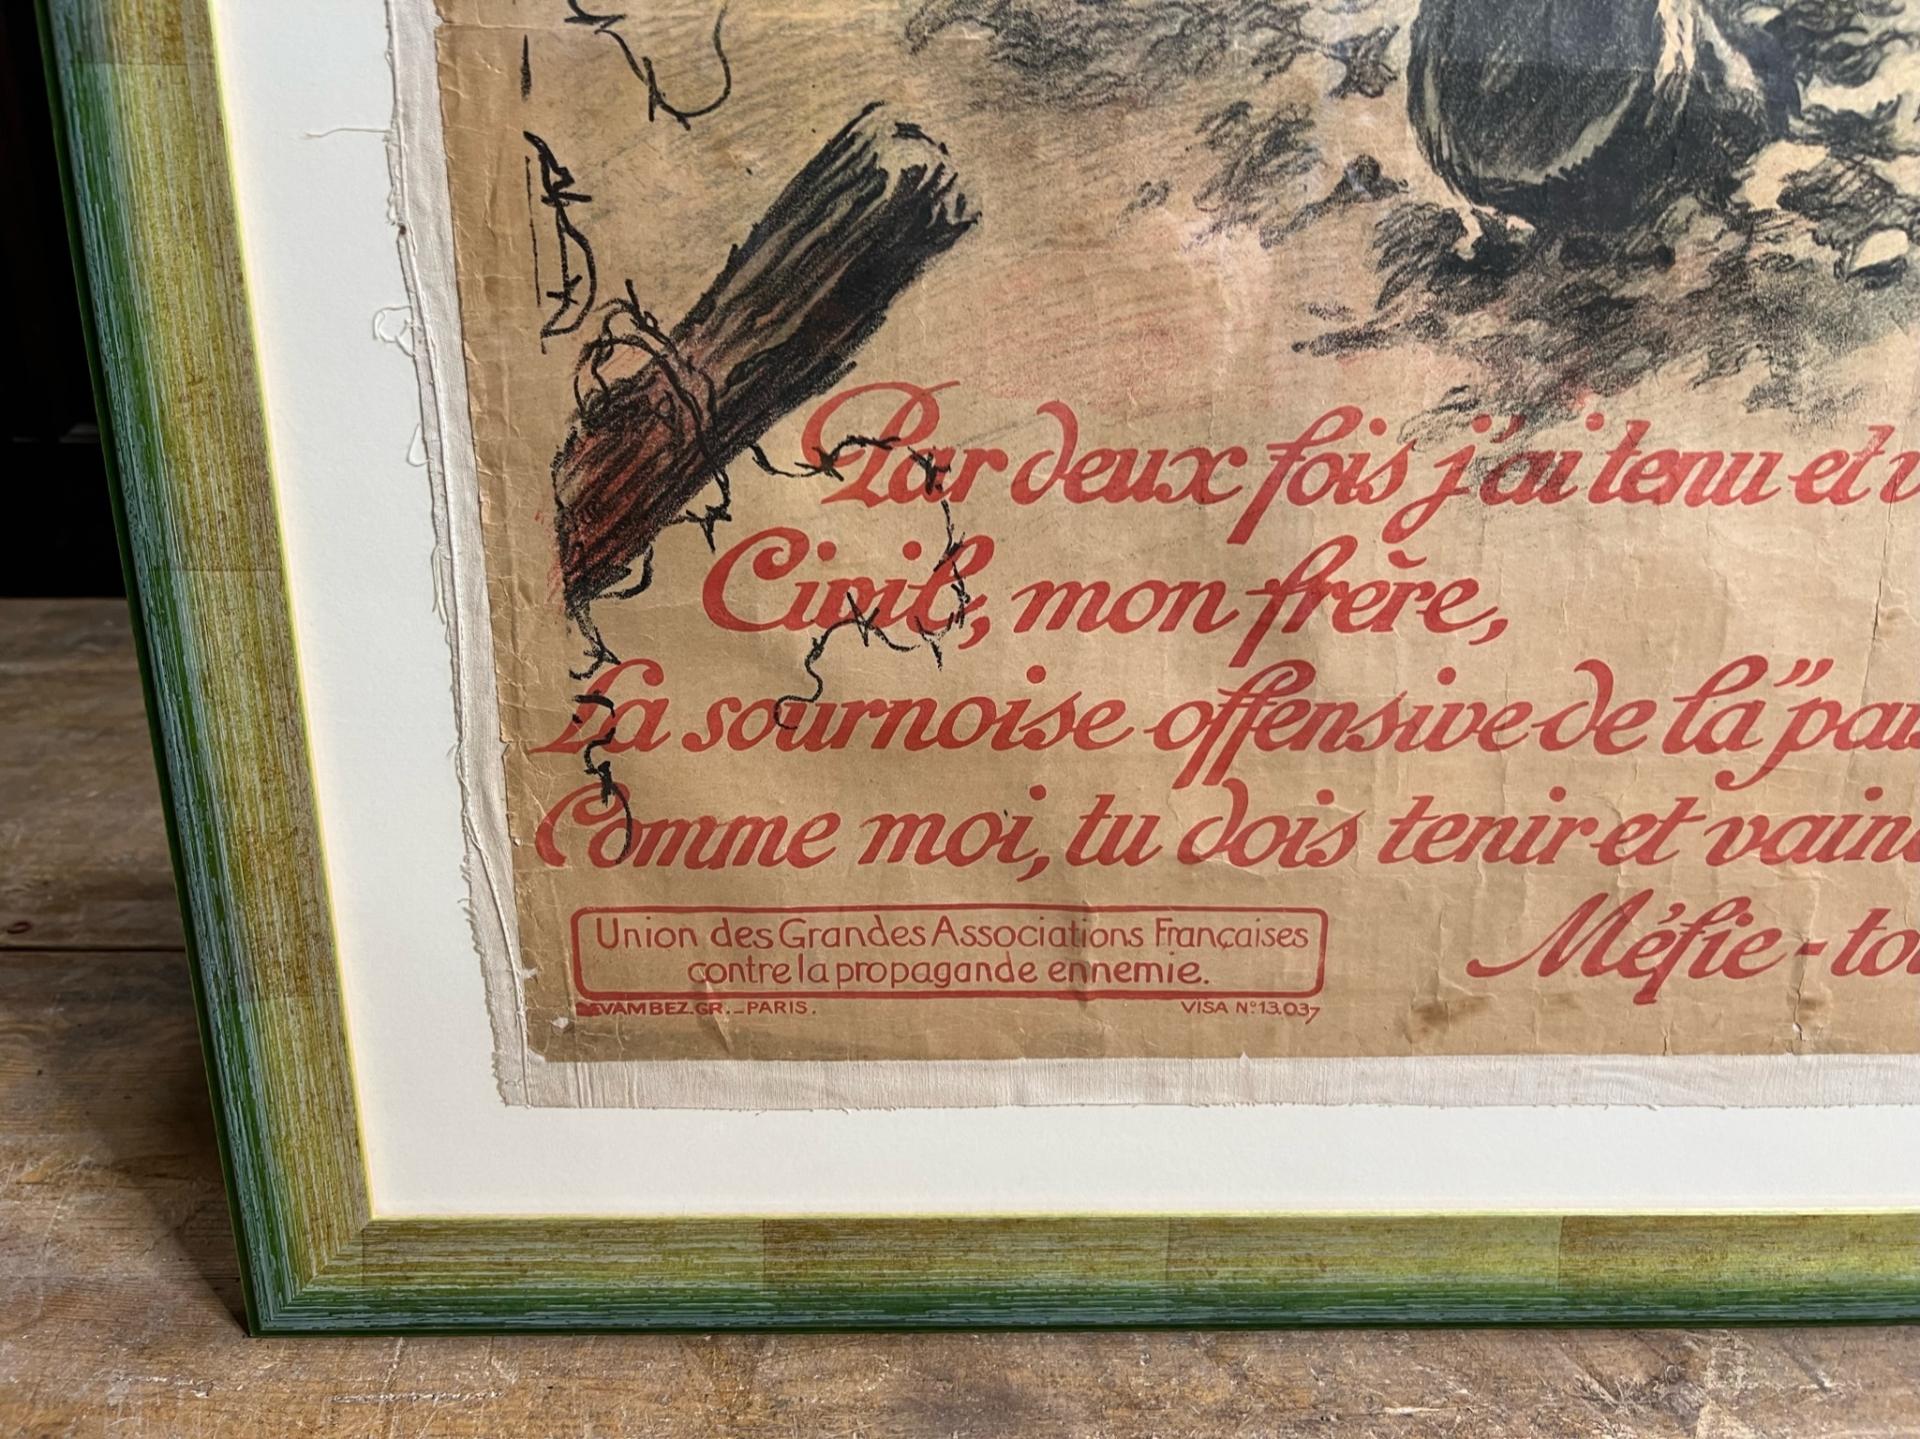 Par deux fois j'ai tenu et
Civil, mon frère,
La sournoise offensive de la "
Comme moi, tu dois tenir et
Méfie-
Union des Grandes Associations Françaises
contre la propagande ennemie.
DEVAMBEZ.GR._PARIS.
VISA Nº13.037